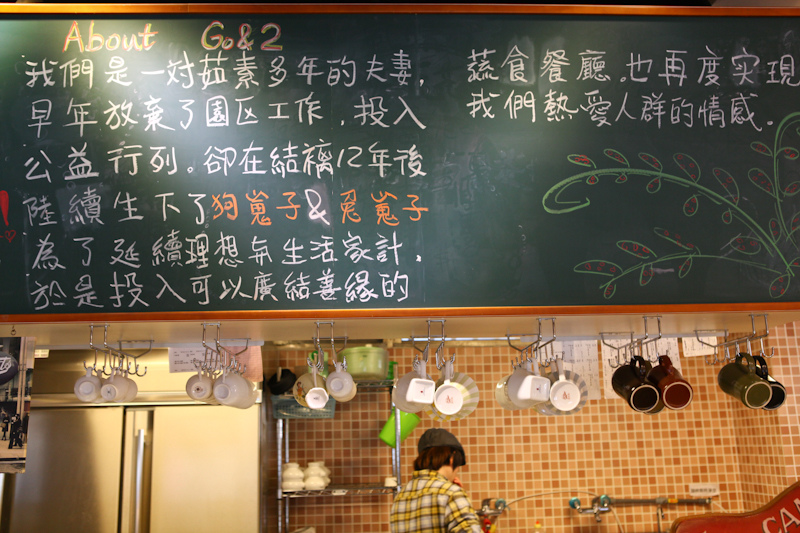 About Go & 2
我們是一对茹素多年的夫妻,
早年放棄了園区工作,投入
公益行列。卻在結褵12年後
陸續生下了狗崽子&兔崽子
為了延續理想與生活家計,
於是投入可以廣結善緣的
蔬食餐廳。也再度实現
我們熱愛人群的情感。
CA